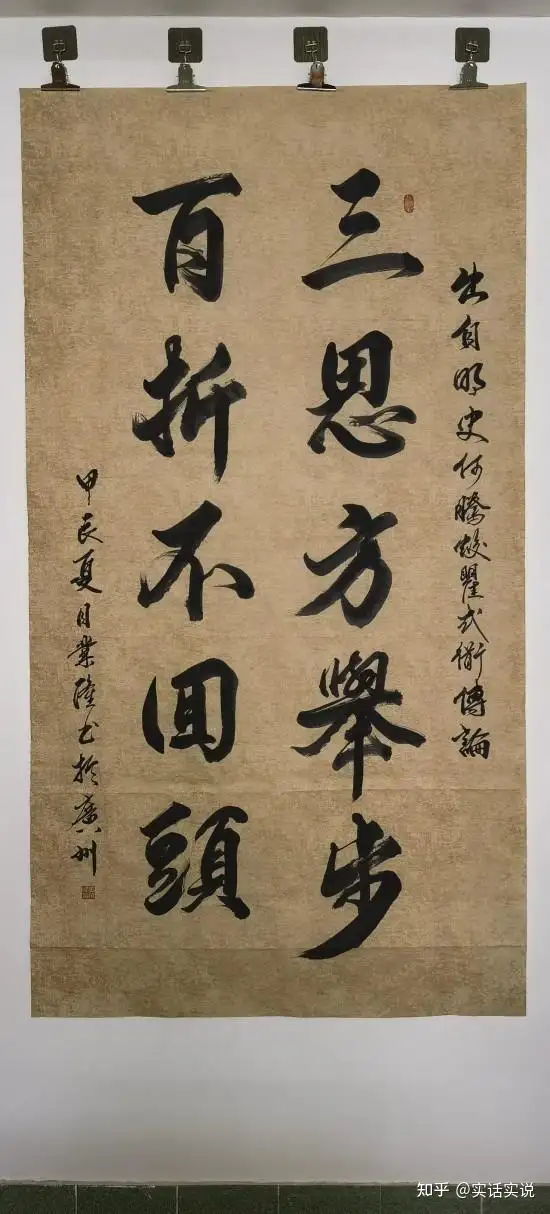 三思方舉步
百折不回頭
出自明史何騰蛟瞿式耜傳論
甲辰夏月業隆書於廣州
知乎 @实话实说